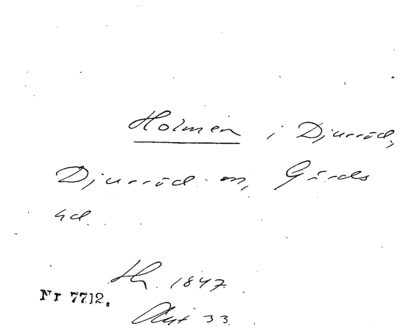 Holmen i Djurröd,
Djurröd sn, Gärds
hd.
Lh. 1847.
Nr 7712.
Akt 33